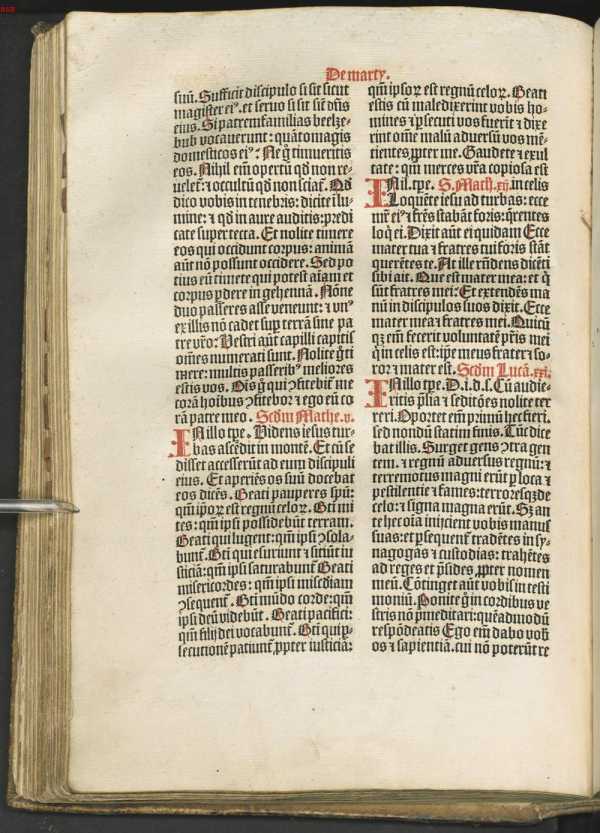 De marty.
suū. Sufficit discipulo si sit sicut
magister eiꝰ. et seruo si sit sic̄ dn̄s
eius. Si patremfamilias beelze-
bub vocauerunt: quātomagis
domesticos eiꝰ: Ne g̊ timueritis
eos. Nihil em̄ opertū qd̄ non re-
uelet᷑: ⁊ occultū qd̄ non sciat᷑. Qd̄
dico vobis in tenebris: dicite ī lu-
mine: ⁊ qd̄ in aure auditis: predi
cate super tecta. Et nolite timere
eos qui occidunt corpus: animā
aūt nō possunt occidere. Sed po
tius eū timete qui potest aīam et
corpus ꝑdere in gehennā. Nōne
duo passeres asse veneunt: ⁊ vnꝰ
ex illis nō cadet suꝑ terrā sine pa
tre vr̄o: Vestri aūt capilli capitis
om̄es numerati sunt. Nolite g̊ ti
mere: multis passeribꝰ meliores
estis vos. Oīs g̊ qui ꝯfitebit᷑ me
corā hoībus ꝯfitebor ⁊ ego eū co
rā patre meo. Scdm̄ Mathe. v.
IN illo tpe. Videns iesus tur-
bas ascēdit in montē. Et cū se
disset accesserūt ad eum discipuli
eius. Et aperiēs os suū docebat
eos dicēs. Beati pauperes spū:
qm̄ ip̄oꝝ est regnū celoꝝ. Bti mi
tes: qm̄ ipsi possidebūt terram.
Beati qui lugent: qm̄ ipsi ꝯsola-
bunt᷑. Bti qui esuriunt ⁊ sitiūt iu
sticiā: qm̄ ipsi saturabunt᷑ Beati
misericordes: qm̄ ipsi mīscdiam
ꝯsequent᷑. Bti mūdo corde: qm̄
ipsi deū videbūt. Beati pacifici:
qm̄ filij dei vocabunt᷑. Bti qui ꝑ-
secutionē patiunt᷑ ꝓpter iusticiā:
qm̄ ipsoꝝ est regnū celoꝝ. Beati
estis cū maledixerint vobis ho-
mines ⁊ ꝑsecuti vos fuerīt ⁊ dixe
rint om̄e malū aduersū vos mē-
tientes ꝓpter me. Gaudete ⁊ exul
tate: qm̄ merces vr̄a copiosa est
IN il. tpe. S. Math. xij. in celis
Loquēte iesu ad turbas: ecce
mr̄ eiꝰ ⁊ fr̄es stabāt foris: q̄rentes
loq̇ ei. Dixit aūt ei quidam Ecce
mater tua ⁊ fratres tui foris stāt
querētes te. At ille rn̄dens dicēti
sibi ait. Que est mater mea: et q̇
sūt fratres mei: Et extendēs ma
nū in discipulos suos dixit. Ecce
mater mea ⁊ fratres mei. Quicū
qꝫ em̄ fecerit voluntatē pr̄is mei
q̇ in celis est: ip̄e meus frater ⁊ so-
ror ⁊ mater est. Scdm̄ Lucā. xxi.
IN illo tpe. D. i. d. s. Cū audie-
ritis p̄lia ⁊ seditōes nolite ter
reri. Oportet em̄ primū hec fieri.
sed nondū statim finis. Tūc dice
bat illis. Surget gens ꝯtra gen
tem. ⁊ regnū aduersus regnū: ⁊
terremotus magni erūt ꝑ loca ⁊
pestilentie ⁊ fames: terroresqꝫ de
celo: ⁊ signa magna erūt. Sꝫ an
te hec oīa inijcient vobis manus
suas: et ꝑsequent᷑ tradētes in sy-
nagogas ⁊ custodias: trahētes
ad reges et p̄sides, ꝓpter nomen
meū. Cōtinget aūt vobis in testi
moniū. Ponite g̊ in cordibus ve
stris nō p̄meditari: quēadmodū
respōdeatis Ego em̄ dabo vob̄
os ⁊ sapientiā. cui nō poterūt re